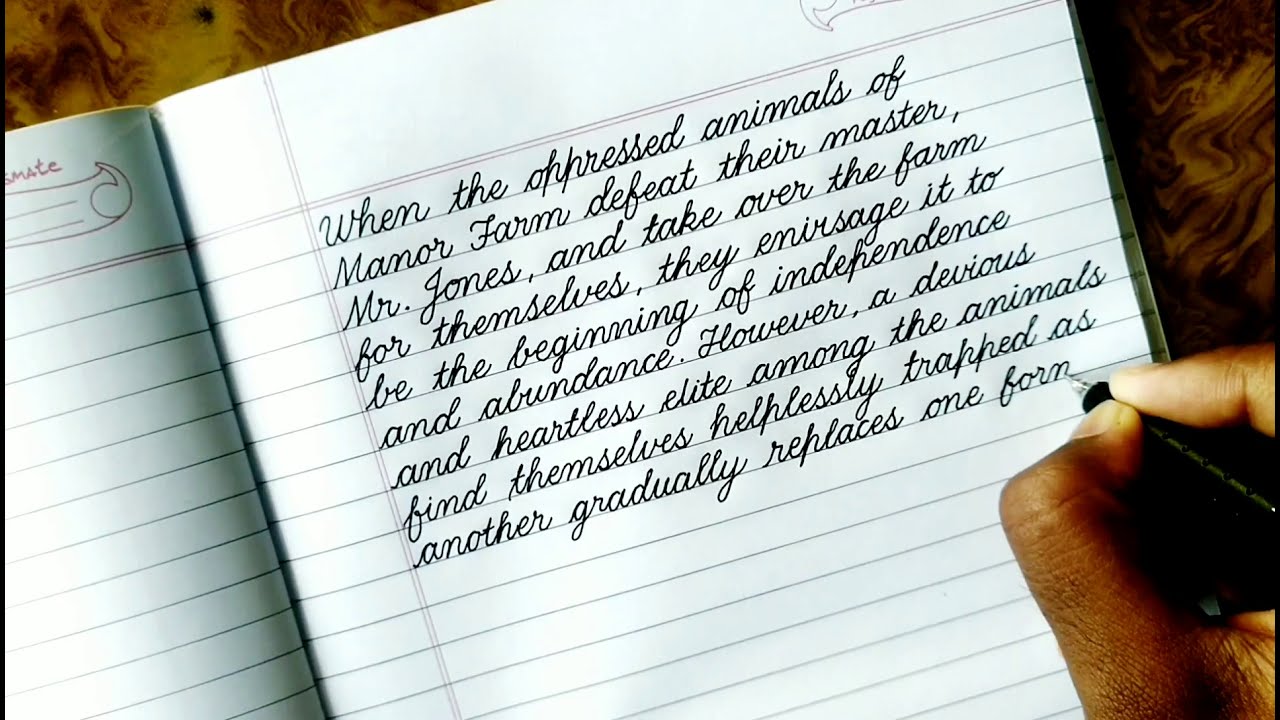 SMATE
When the oppressed animals of
Manor Farm defeat their master,
Mr. Jones, and take over the farm
for themselves, they enirsage it to
be the beginning of independence
and abundance. However, a devious
and heartless elite among the animals
find themselves helplessly trapped as
another gradually replaces one form